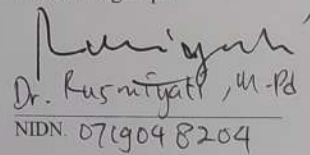 Dr. Rusmiyati, M.Pd
NIDN. 0719048204